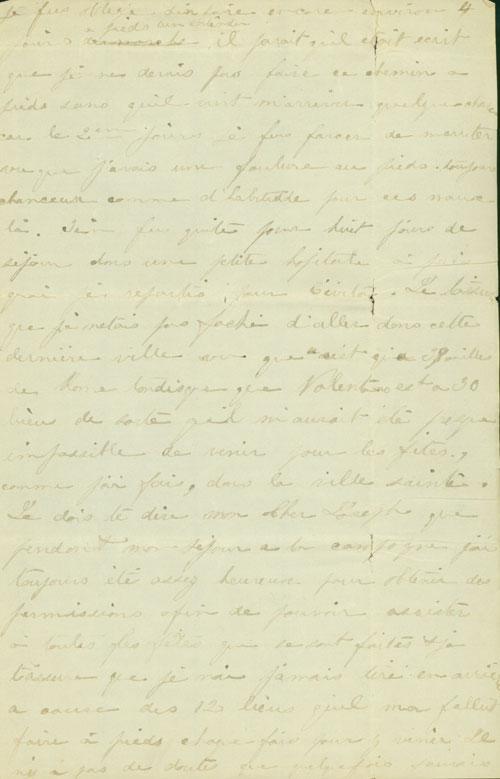 je fus obligé d'en faire encore environ 4
à pieds bien entendu
jours de marche il parait qu'il était ecrit
que je ne devais pas faire ce chemin a
pieds sans qu'il vint m'arriver quelque chose
car le 2em jours je fus forcer de m'arreter
vu que j'avais une foulure au pieds. toujours
chanceux comme d'habitude pour ces
là. J'en fus quite pour huit jours de
séjour dans une petite hopitale
je repartis pour Civita. Je t'assure
que je n'etais pas faché d'aller dans cette
dernière ville vu que n'est qu'a milles
de Rome tandisque que Valentano est a 30
lieus de sorte qu'il m'aurait été presque
impossible de venir pour les fêtes,
comme j'ai fais, dans la ville sainte.
Je dois te dire mon cher que
pendant mon séjour a la campagne j'ai
toujours été assez heureux pour obtenir des
permissions afin de pouvoir assister
à toutes les fêtes qui se sont faites & je
t'assure que je n'ai jamais tiré en arrière
a cause des 12 lieus qu'il m'a fallut
faire à pieds chaque fois pour y venir. Il
n'y a pas de doute que quelquefois j'aurais